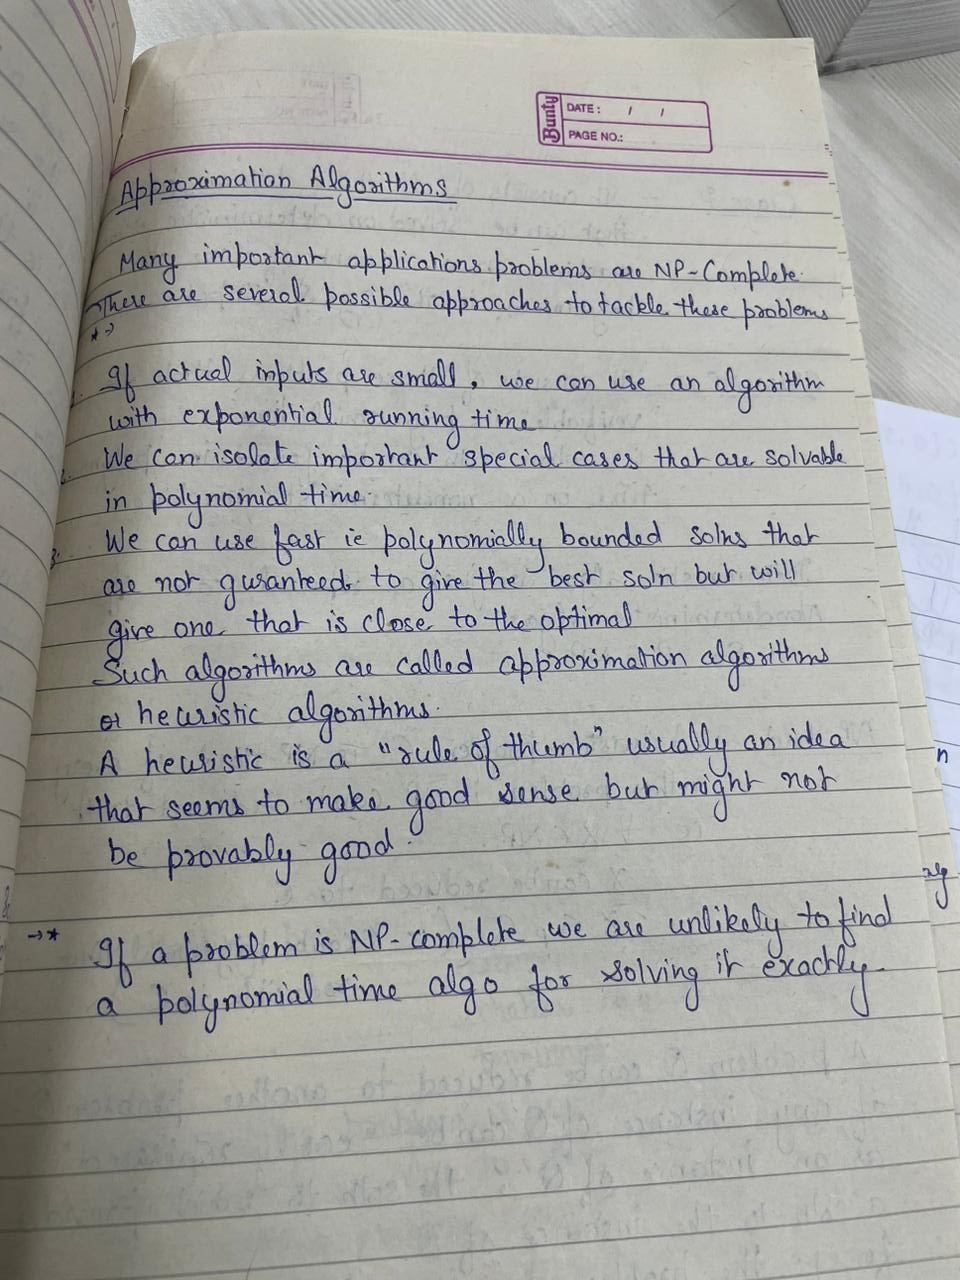 Bunty
DATE: / /
PAGE NO.:
Approximation Algorithms
Many important applications problems are NP-Complete.
There are several possible approaches to tackle these problems
*→
1. If actual inputs are small, we can use an algorithm
with exponential running time
2. We can isolate important special cases that are solvable
in polynomial time.
3. We can use fast ie polynomially bounded solns that
are not guranteed to give the best soln but will
give one that is close to the optimal
Such algorithms are called approximation algorithms
or heuristic algorithms.
A heuristic is a "rule of thumb" usually an idea
that seems to make good sense but might not
be provably good.
→* If a problem is NP-complete we are unlikely to find
a polynomial time algo for solving it exactly.